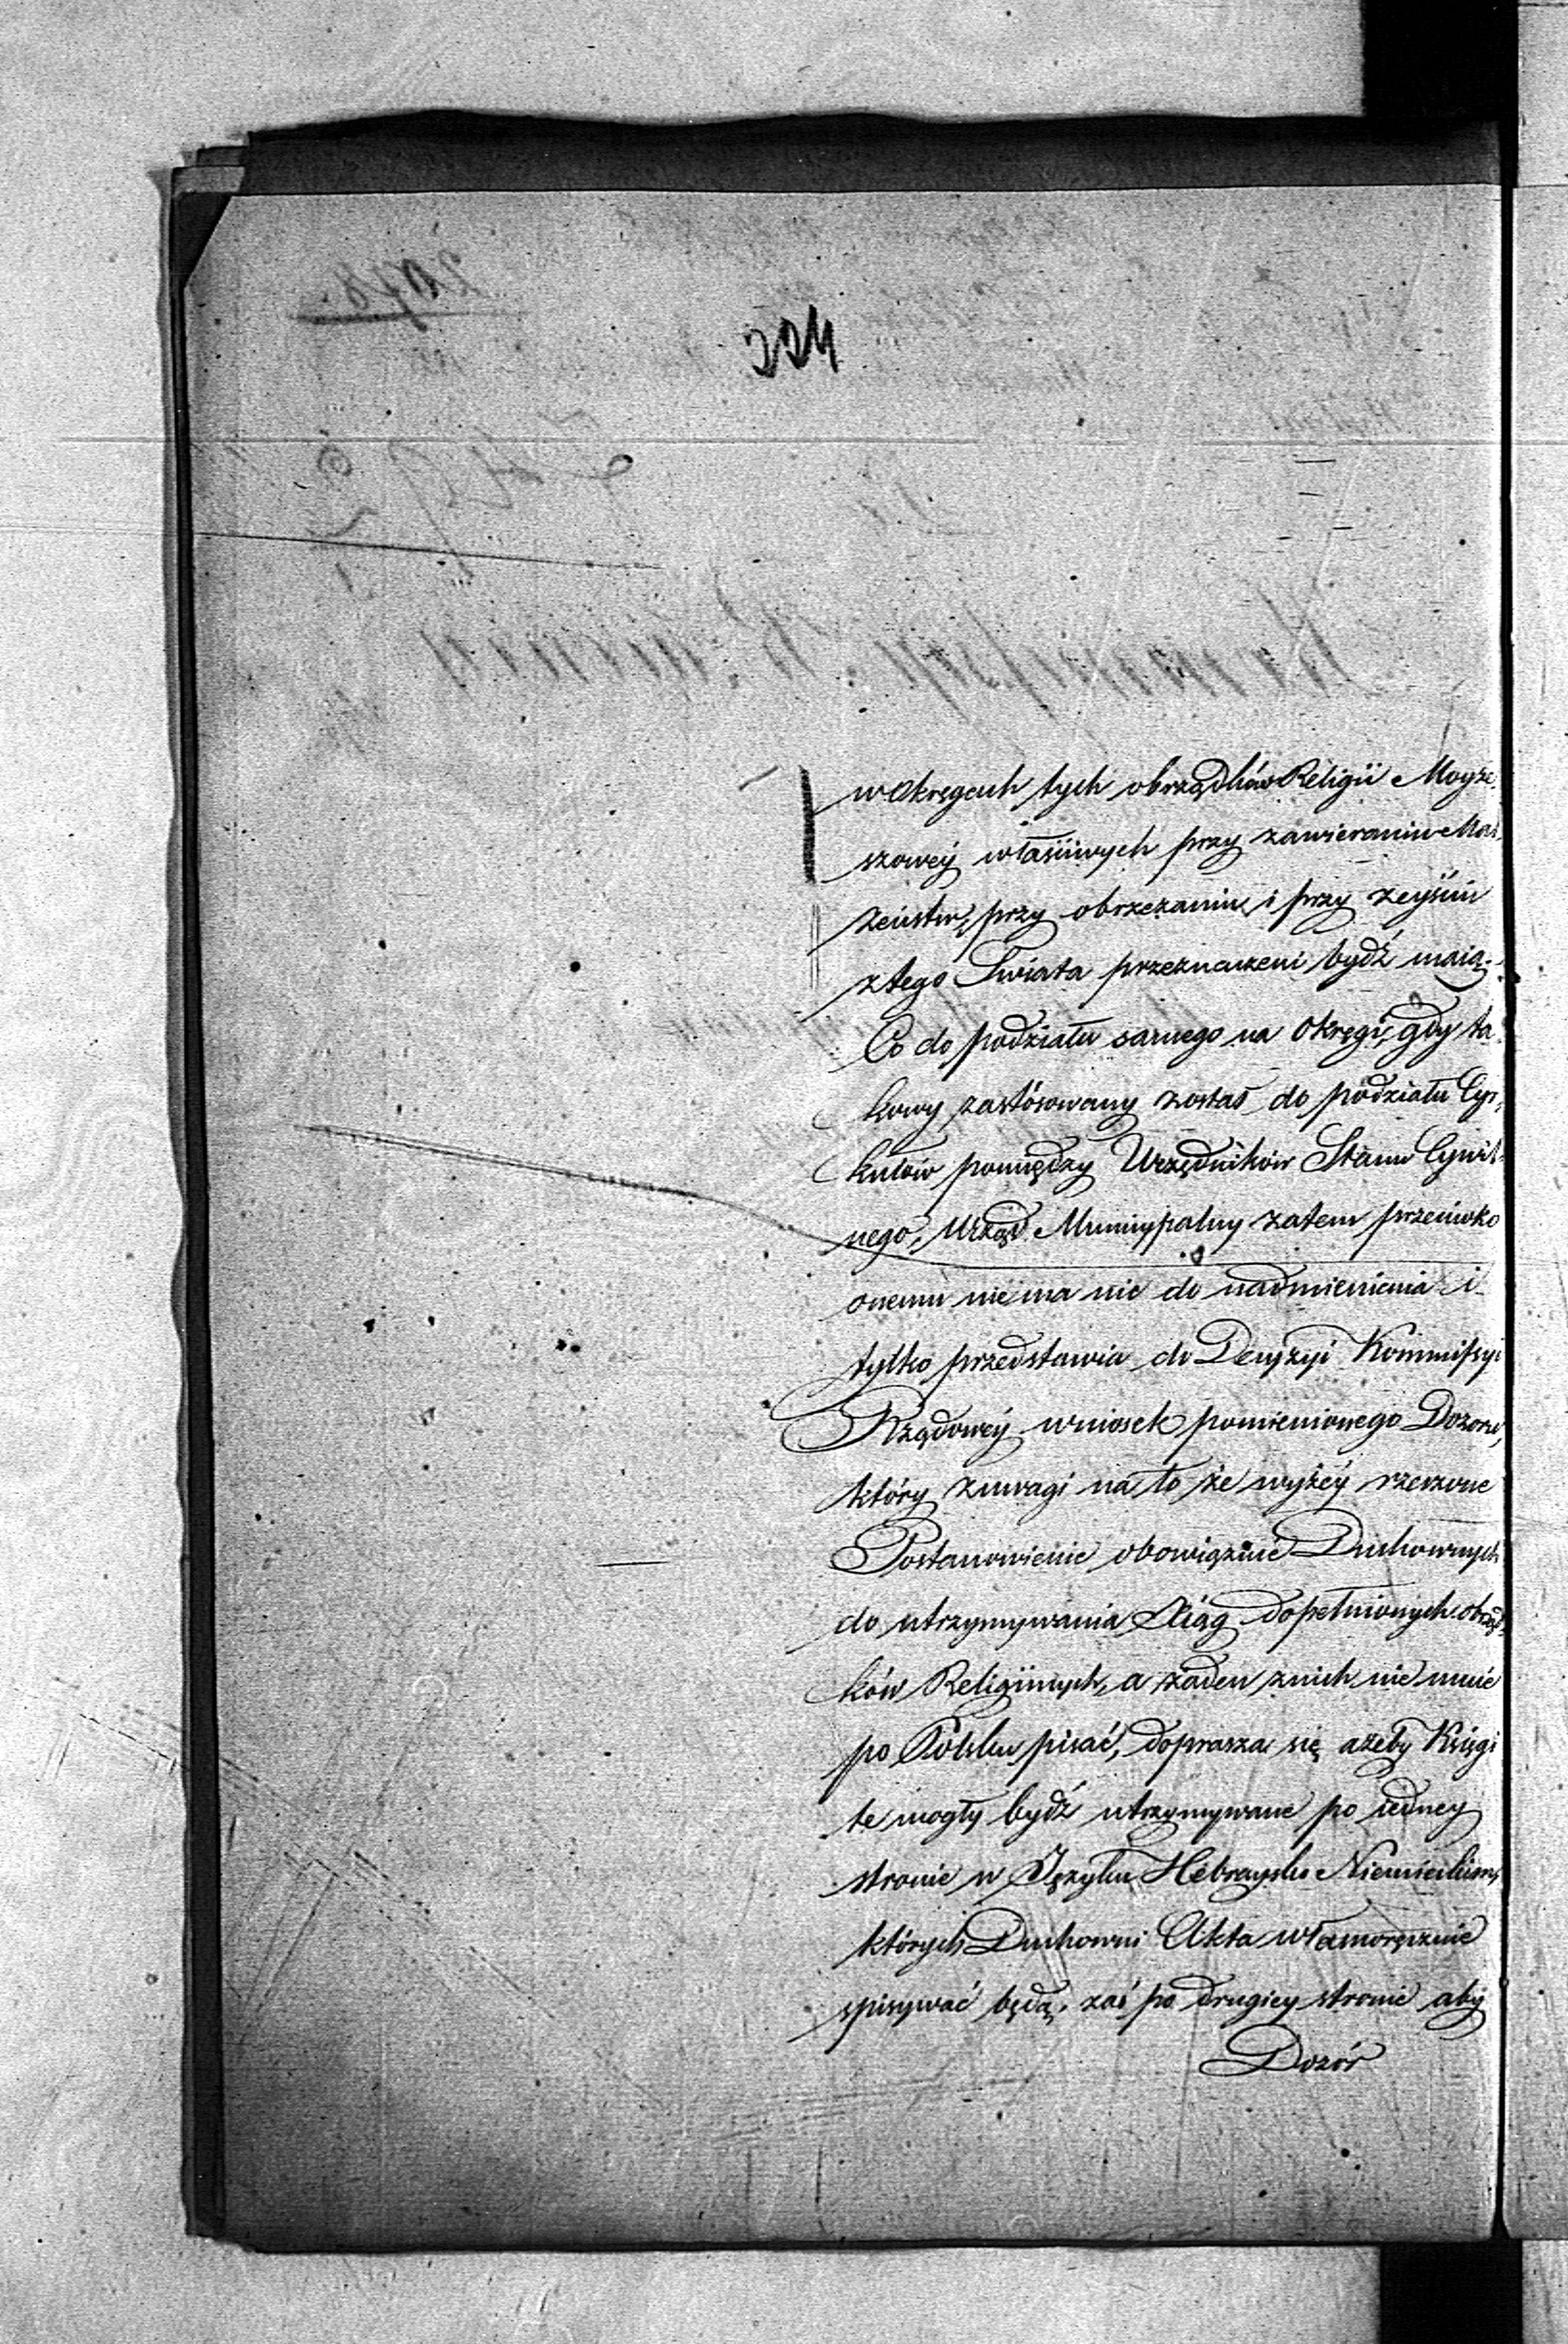 224
w Okręgach tych obrządków Religii Moyże-
szowéy właściwych przy zawieraniu Mał-
żeństw, przy obrzezaniu, i przy zeyściu
z tego Swiata przeznaczeni bydź maią.
Co do podziału samego na Okręgi, gdy ta-
kowy zastósowany został do podziału Cyr-
kułów pomiędzy Urzędników Stanu Cywil-
nego, Urząd Municypalny zatem przeciwko
onemu nie ma nic do nadmienienia i
tylko przedstawia do Decyzyi Kommissyi
Rządowéy wniosek pomienionego Dozoru,
który z uwagi na to że wyżéy rzeczone
Postanowienie obowiązuie Duchownych
do utrzymywania Xiąg dopełnionych obrząd-
ków Religiinych, a żaden z nich nie umie
po Polsku pisać, doprasza się ażeby Księgi
te mogły bydź utrzymywane po iedney
stronie w Języku Hebraysko Niemieckim,
których Duchowni Akta własnoręcznie
spisywać będą, zaś po drugiey stronie aby
Dozór